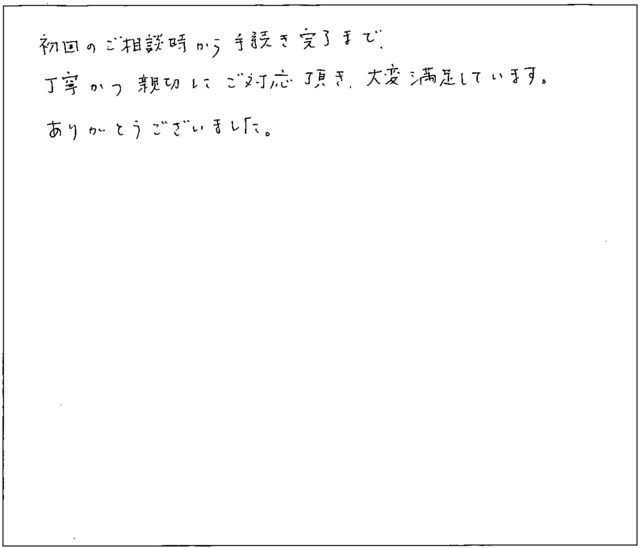 初回のご相談時から手続き完了まで、
丁寧かつ親切にご対応頂き、大変満足しています。
ありがとうございました。